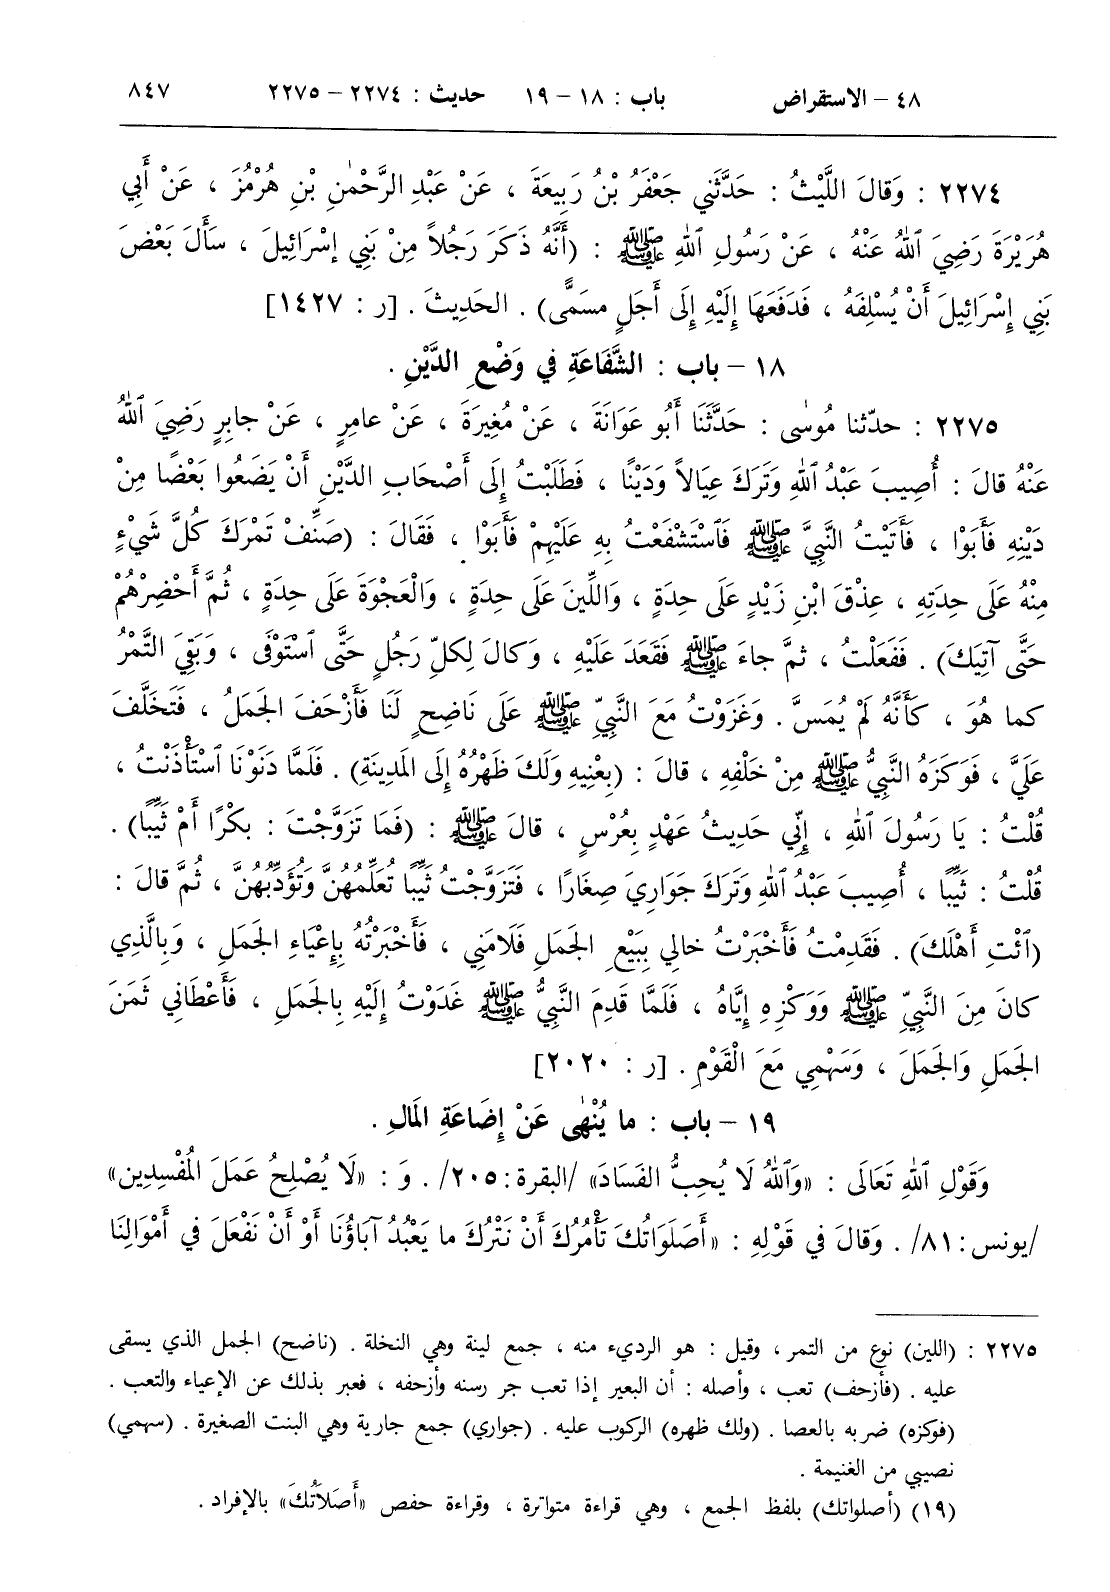 ٤٨ – الاستقراض باب : ١٨ – ١٩ حديث : ٢٢٧٤ – ٢٢٧٥ ٨٤٧
٢٢٧٤ : وَقالَ اللَّيْثُ : حَدَّثَنِي جَعْفَرُ بْنُ رَبِيعَةَ ، عَنْ عَبْدِ الرَّحْمٰنِ بْنِ هُرْمُزَ ، عَنْ أَبِي
هُرَيْرَةَ رَضِيَ ٱللهُ عَنْهُ ، عَنْ رَسُولِ ٱللهِ ﷺ : (أَنَّهُ ذَكَرَ رَجُلاً مِنْ بَنِي إِسْرَائِيلَ ، سَأَلَ بَعْضَ
بَنِي إِسْرَائِيلَ أَنْ يُسْلِفَهُ ، فَدَفَعَهَا إِلَيْهِ إِلَى أَجَلٍ مسَمًّى) . الحَدِيثَ . [ر : ١٤٢٧]
١٨ – باب : الشَّفَاعَةِ فِي وَضْعِ الدَّيْنِ .
٢٢٧٥ : حدّثنا مُوسٰى : حَدَّثَنَا أَبُو عَوَانَةَ ، عَنْ مُغِيرَةَ ، عَنْ عامِرٍ ، عَنْ جابِرٍ رَضِيَ ٱللهُ
عَنْهُ قالَ : أُصِيبَ عَبْدُ ٱللهِ وَتَرَكَ عِيَالاً وَدَيْنًا ، فَطَلَبْتُ إِلَى أَصْحَابِ الدَّيْنِ أَنْ يَضَعُوا بَعْضًا مِنْ
دَيْنِهِ فَأَبَوْا ، فَأَتَيْتُ النَّبِيَّ ﷺ فَٱسْتَشْفَعْتُ بِهِ عَلَيْهِمْ فَأَبَوْا ، فَقَالَ : (صَنِّفْ تَمْرَكَ كُلَّ شَيْءٍ
مِنْهُ عَلَى حِدَتِهِ ، عِذْقَ ابْنِ زَيْدٍ عَلَى حِدَةٍ ، وَاللِّينَ عَلَى حِدَةٍ ، وَالْعَجْوَةَ عَلَى حِدَةٍ ، ثُمَّ أَحْضِرْهُمْ
حَتَّى آتِيَكَ) . فَفَعَلْتُ ، ثمَّ جاءَ ﷺ فَقَعَدَ عَلَيْهِ ، وَكالَ لِكلِّ رَجُلٍ حَتَّى ٱسْتَوْفَى ، وَبَقِيَ التَّمْرُ
كما هُوَ ، كَأَنَّهُ لَمْ يُمَسَّ . وَغَزَوْتُ مَعَ النَّبِيِّ ﷺ عَلَى نَاضِحٍ لَنَا فَأَزْحَفَ الجَمَلُ ، فَتَخَلَّفَ
عَلَيَّ ، فَوَكَزَهُ النَّبِيُّ ﷺ مِنْ خَلْفِهِ ، قالَ : (بِعْنِيهِ وَلَكَ ظَهْرُهُ إِلَى المَدِينَةِ) . فَلَمَّا دَنَوْنَا ٱسْتَأْذَنْتُ ،
قُلْتُ : يَا رَسُولَ ٱللهِ ، إِنِّي حَدِيثُ عَهْدٍ بِعُرْسٍ ، قالَ ﷺ : (فَمَا تَزَوَّجْتَ : بِكْرًا أَمْ ثَيِّبًا) .
قُلْتُ : ثَيِّبًا ، أُصِيبَ عَبْدُ ٱللهِ وَتَرَكَ جَوَارِيَ صِغَارًا ، فَتَزَوَّجْتُ ثَيِّبًا تُعَلِّمُهُنَّ وَتُؤَدِّبُهُنَّ ، ثُمَّ قالَ :
(ٱئْتِ أَهْلَكَ) . فَقَدِمْتُ فَأَخْبَرْتُ خالِي بِبَيْعِ الجَمَلِ فَلَامَنِي ، فَأَخْبَرْتُهُ بِإِعْيَاءِ الجَمَلِ ، وَبِالَّذِي
كانَ مِنَ النَّبِيِّ ﷺ وَوَكْزِهِ إِيَّاهُ ، فَلَمَّا قَدِمَ النَّبِيُّ ﷺ غَدَوْتُ إِلَيْهِ بِالجَمَلِ ، فَأَعْطَانِي ثَمَنَ
الجَمَلِ وَالجَمَلَ ، وَسَهْمِي مَعَ الْقَوْمِ . [ر : ٢٠٢٠]
١٩ – باب : ما يُنْهٰى عَنْ إِضَاعَةِ المَالِ .
وَقَوْلِ ٱللهِ تَعَالَى : «وَٱللهُ لَا يُحِبُّ الفَسَادَ» /البقرة: ٢٠٥/ . وَ : «لَا يُصْلِحُ عَمَلَ المُفْسِدِين»
/يونس: ٨١/ . وَقالَ فِي قَوْلِهِ : «أَصَلَوَاتُكَ تَأْمُرُكَ أَنْ نَتْرُكَ ما يَعْبُدُ آبَاؤُنَا أَوْ أَنْ نَفْعَلَ فِي أَمْوَالِنَا
٢٢٧٥ : (اللين) نوع من التمر ، وقيل : هو الرديء منه ، جمع لينة وهي النخلة . (ناضح) الجمل الذي يسقى
عليه . (فأزحف) تعب ، وأصله : أن البعير إذا تعب جر رسنه وأزحفه ، فعبر بذلك عن الإعياء والتعب .
(فوكزه) ضربه بالعصا . (ولك ظهره) الركوب عليه . (جواري) جمع جارية وهي البنت الصغيرة . (سهمي)
نصيبي من الغنيمة .
(١٩) (أصلواتك) بلفظ الجمع ، وهي قراءة متواترة ، وقراءة حفص «أَصَلَاتُكَ» بالإفراد .